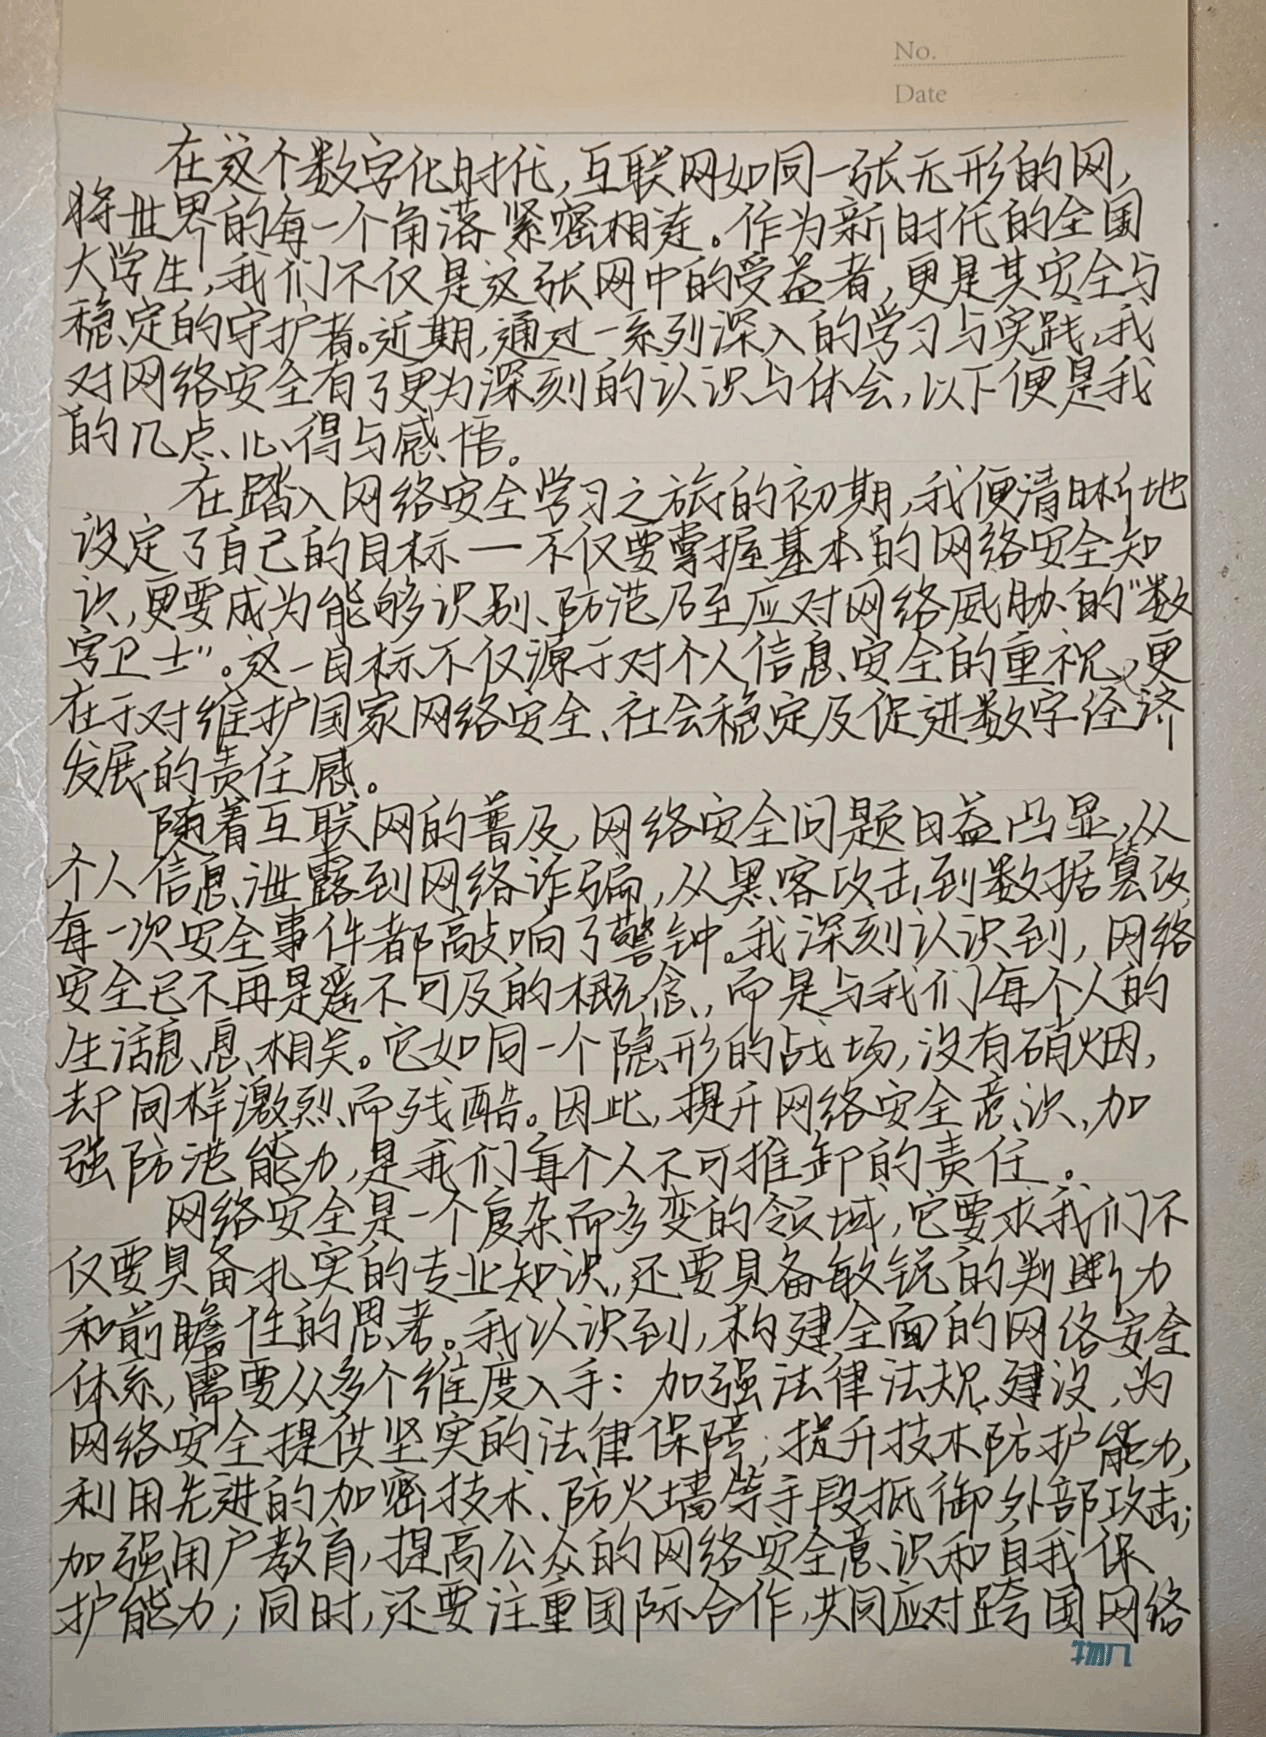 No.
Date
在这个数字化时代,互联网如同一张无形的网,
将世界的每一个角落紧密相连。作为新时代的全国
大学生,我们不仅是这张网中的受益者,更是其安全与
稳定的守护者。近期,通过一系列深入的学习与实践,我
对网络安全有了更为深刻的认识与体会,以下便是我
的几点心得与感悟。
在踏入网络安全学习之旅的初期,我便清晰地
设定了自己的目标—不仅要掌握基本的网络安全知
识,更要成为能够识别、防范乃至应对网络威胁的“数
字卫士”。这一目标不仅源于对个人信息安全的重视,更
在于对维护国家网络安全、社会稳定及促进数字经济
发展的责任感。
随着互联网的普及,网络安全问题日益凸显,从
个人信息泄露到网络诈骗,从黑客攻击到数据篡改,
每一次安全事件都敲响了警钟。我深刻认识到,网络
安全已不再是遥不可及的概念,而是与我们每个人的
生活息息相关。它如同一个隐形的战场,没有硝烟,
却同样激烈而残酷。因此,提升网络安全意识,加
强防范能力,是我们每个人不可推卸的责任。
网络安全是一个复杂而多变的领域,它要求我们不
仅要具备扎实的专业知识,还要具备敏锐的判断力
和前瞻性的思考。我认识到,构建全面的网络安全
体系,需要从多个维度入手:加强法律法规建设,为
网络安全提供坚实的法律保障;提升技术防护能力,
利用先进的加密技术、防火墙等手段抵御外部攻击;
加强用户教育,提高公众的网络安全意识和自我保
护能力;同时,还要注重国际合作,共同应对跨国网络